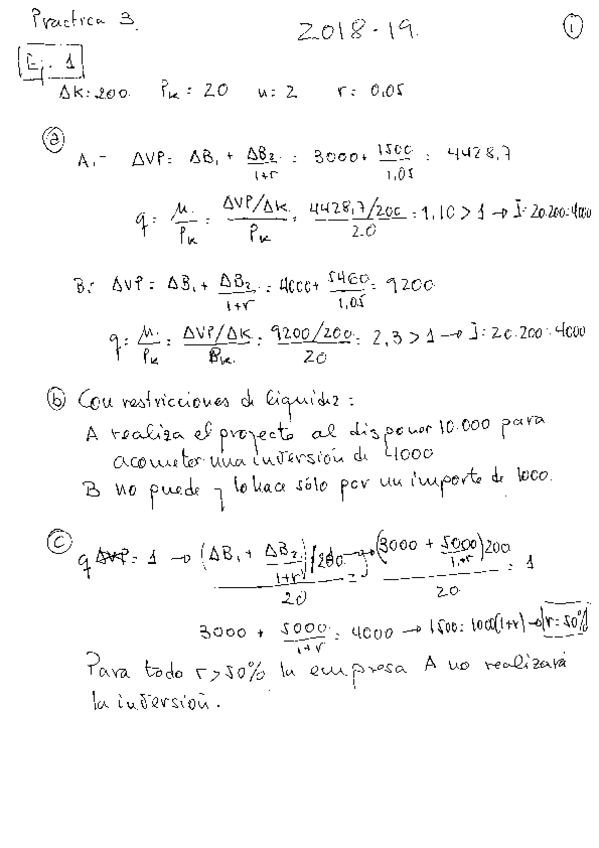 Practica 3.
2018-19.
1
Ej. 1
ΔK: 200 Pk = 20 n: 2 r: 0,05
a
A.- ΔVP: ΔB1 + ΔB2/1+r : 3000 + 1500/1,05 : 4428,7
q: μ/Pk : ΔVP/ΔK/Pk : 4428,7/200/20 : 1,10 > 1 → I: 20.200: 4000
B: ΔVP: ΔB1 + ΔB2/1+r : 4000 + 5460/1,05 : 9200
q: μ/Pk : ΔVP/ΔK/Pk : 9200/200/20 : 2,3 > 1 → I: 20.200: 4000
b Con restricciones de liquidez:
A realiza el proyecto al disponer 10.000 para
acometer una inversión de 4000
B no puede y lo hace sólo por un importe de 1000.
c q = 1 → (ΔB1 + ΔB2/1+r)/200/20 = (3000 + 5000/1+r)200/20 = 1
3000 + 5000/1+r : 4000 → 1500: 1000(1+r) → r: 50%
Para todo r > 50% la empresa A no realizará
la inversión.